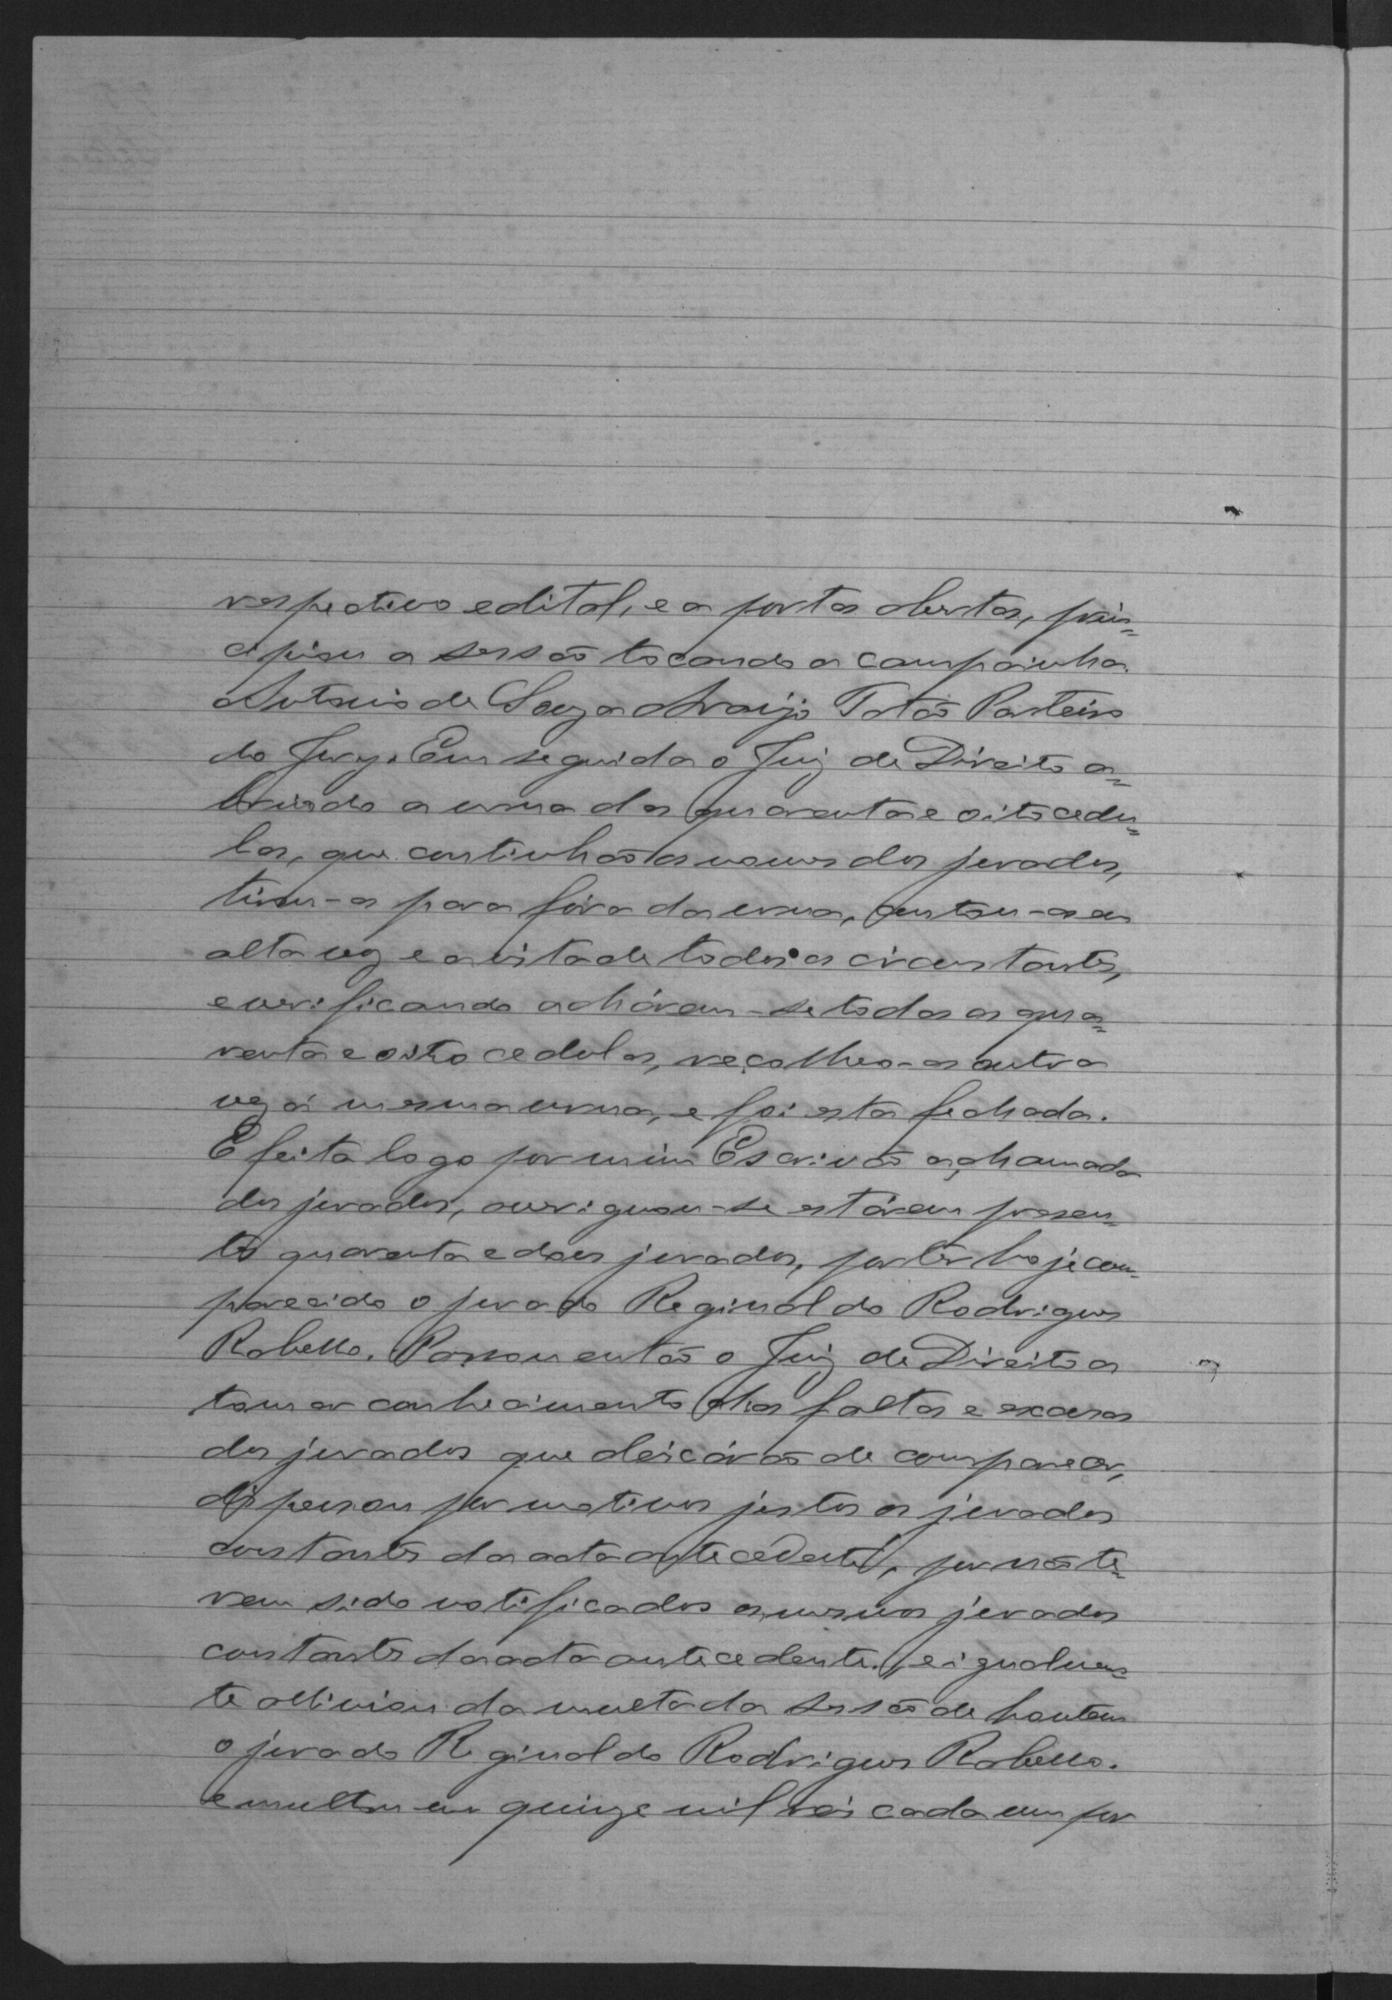 respectivo edital, e a portas abertas, prin=
cipiou a sessão tocando a campainha
Antonio de Souza Araujo Tatão Porteiro
do Jury. Em seguida o Juiz de Direito a=
brindo a urna das quarenta e oito cedu=
las, que continhão os nomes dos jurados,
tirou-as para fóra da urna, contou-as em
alta voz e a vista de todos os circunstantes,
e verificando acharem-se todas as qua=
renta e oito cedulas, recolheo-as outra
vez á mesma urna, e foi esta fechada.
E feita logo por mim Escrivão a chamada
dos jurados, averiguou-se estárem presen=
tes quarenta e dous jurados, por ter hoje com=
parecido o jurado Reginaldo Rodrigues
Rabello. Passou então o Juiz de Direito a
tomar conhecimento das faltas e excusas
dos jurados que deixárão de comparecer,
dispensou por motivos justos os jurados
constantes da acta antecedente, por não te=
rem sido notificados os mesmos jurados
constantes da acta antecedente, e igualmen=
te alliviou da multa da sessão de hontem
o jurado Reginaldo Rodrigues Rabello.
e multou em quinze mil reis cada um por